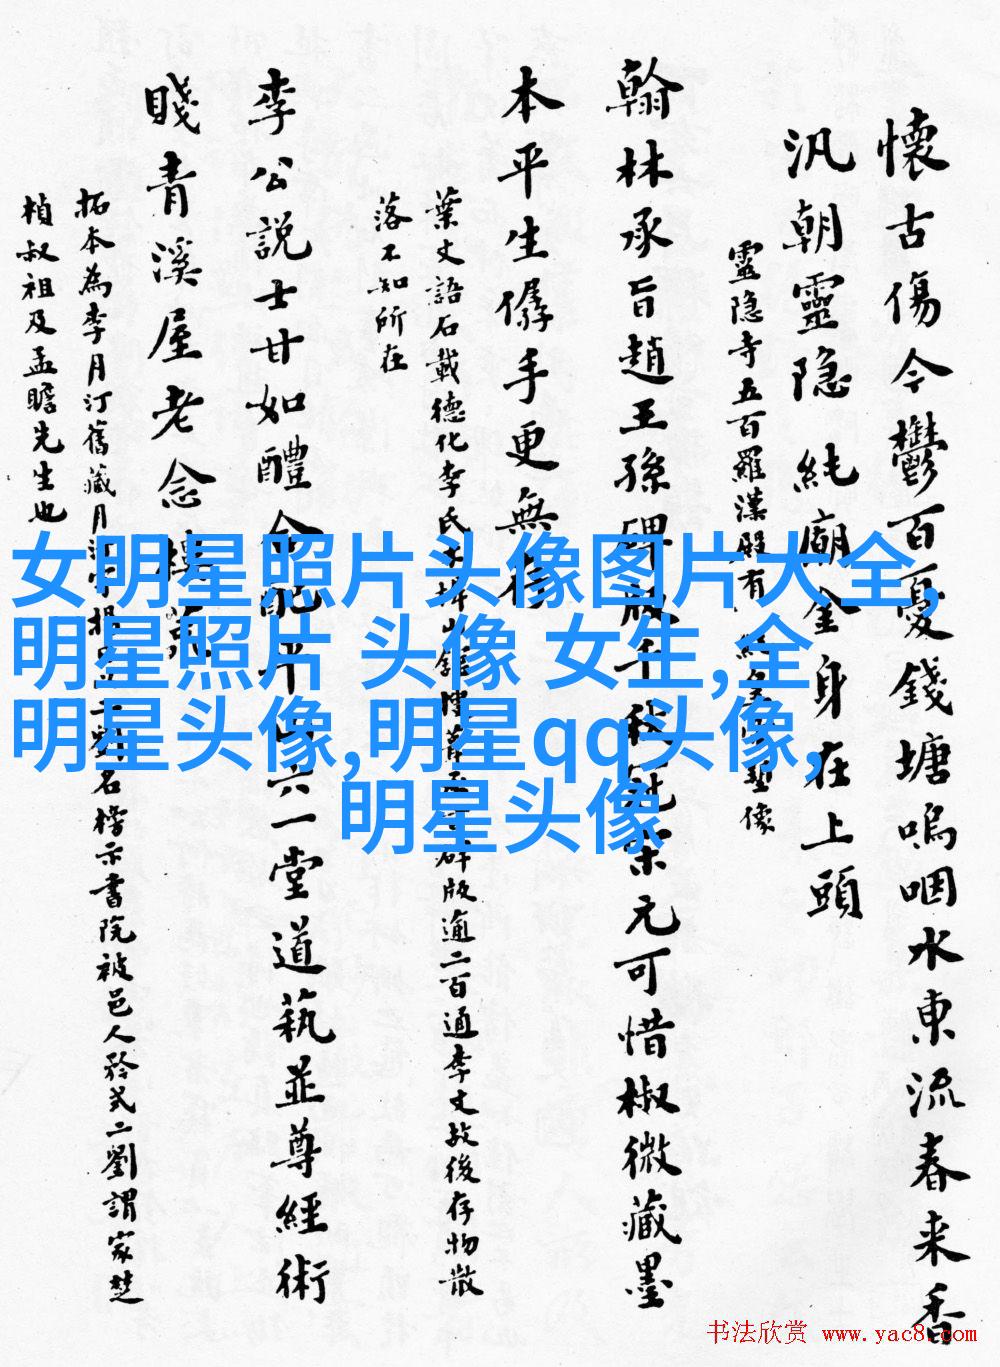 懷古傷今鬱百憂錢塘嗚咽水東流春来香
汎朝靈隐純廟金身在上頭
靈隐寺五百羅漢殿有純皇塑像
翰林承旨趙王孫碑版千秋元可惜椒微藏墨
本平生儔手更無
葉文語石載德化李氏碑版逾二百通李文故後存物散
落不知所在
李公説士甘如醴六一堂道藝並尊經術
賤青溪屋老念
拓本為李月汀舊藏月劉名榜示書院被邑人於式二劉謂家楚
楨叔祖及孟瞻先生也
女明星照片头像图片大全,
明星照片 头像 女生,全
明星头像,明星qq头像,
明星头像
书法欣赏 www.yac8.com